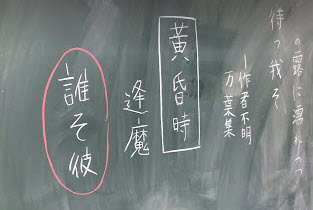 の露に濡れつつ
待つ我そ
―作者不明
万葉集
黄昏時
逢魔
誰そ彼